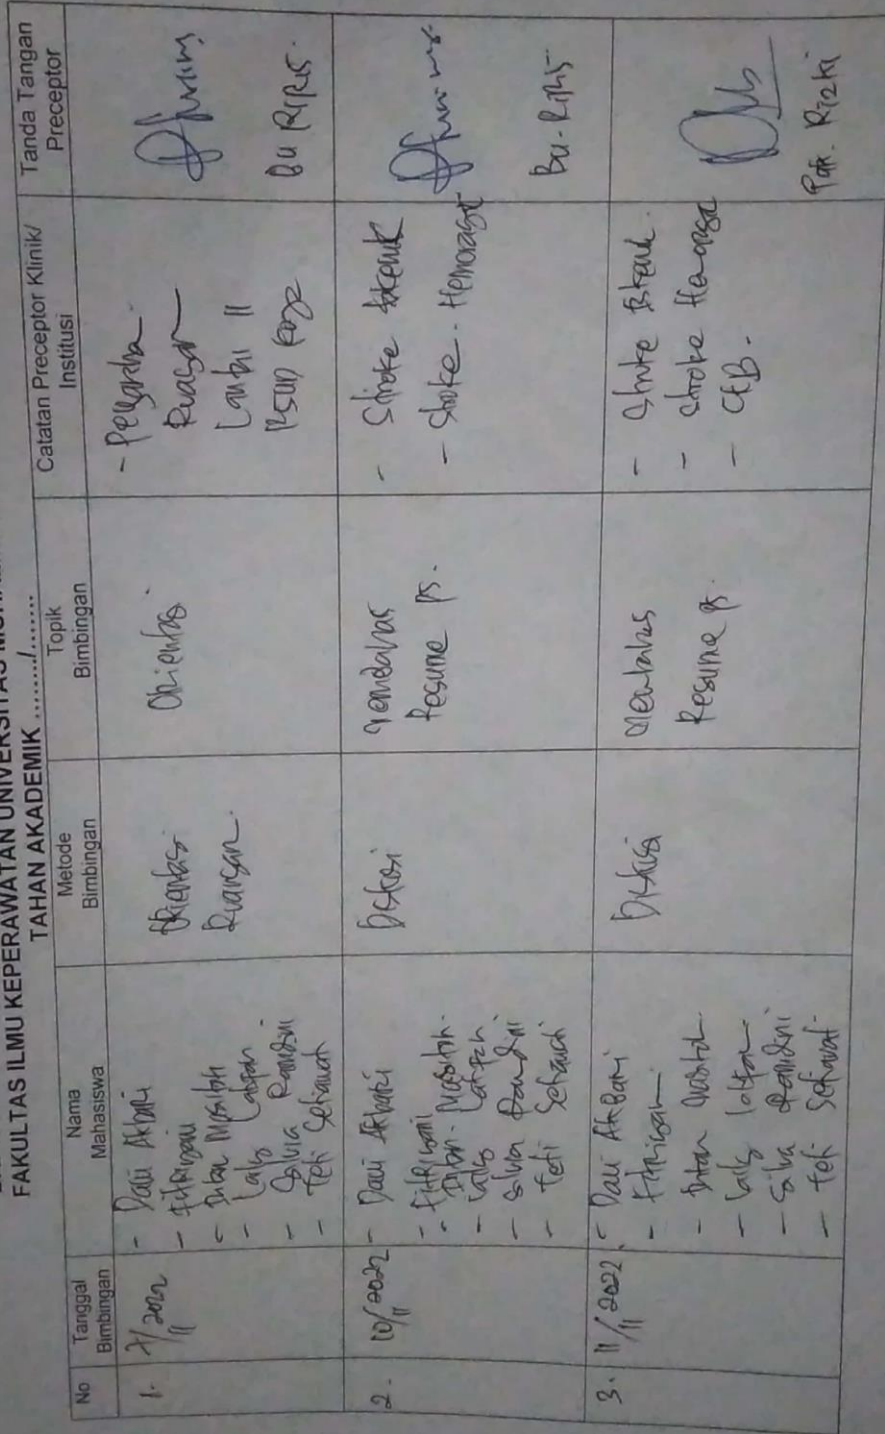 FAKULTAS ILMU KEPERAWATAN UNIVERSITAS
TAHAN AKADEMIK ......../........
No
Tanggal
Bimbingan
Nama
Mahasiswa
Metode
Bimbingan
Topik
Bimbingan
Catatan Preceptor Klinik/
Institusi
Tanda Tangan
Preceptor
1.
7/11 2022
- Davi Akbari
- Fitriyani
- Intan Masitoh
- Laily
- Silvia
- Teti Setiawati
Orientasi
Ruangan.
Orientasi
-
Ruangan
Lantai II
RSUP
Bu RIRIS.
2.
10/11 2022
- Davi Akbari
- Fitriyani
- Intan Masitoh.
- Laily
- Silvia
- Teti Setiawati
Diskusi
Membahas
Resume ps.
- Stroke Iskemik
- Stroke. Hemoragik
Bu. RIRIS
3.
11/11 2022
- Davi Akbari
- Fitriyani.
- Intan Masitoh
- Laily
- Silvia
- Teti Setiawati
Diskusi
Membahas
Resume ps.
- Stroke Iskemik.
- Stroke
-
Pak. Rizki